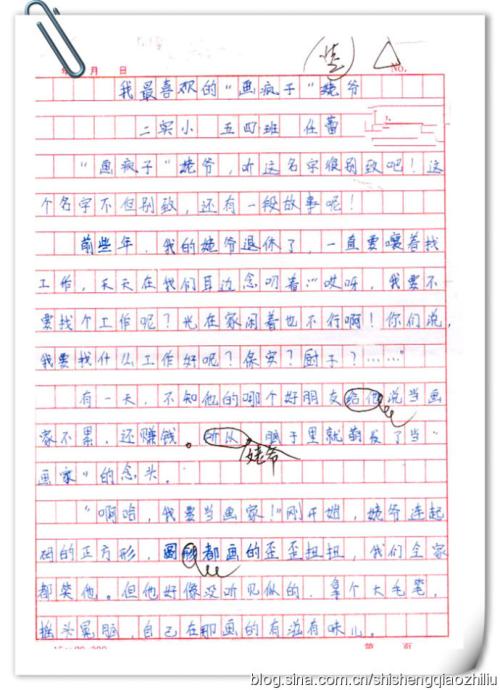 佳
年 月 日 NO.
我最喜欢的“画疯子”姥爷
二实小 五四班 任蕾
“画疯子”姥爷，听这名字很别致吧！这
个名字不但别致，还有一段故事呢！
前些年，我的姥爷退休了，一直要嚷着找
工作，天天在我们耳边念叨着：“哎呀，我要不
要找个工作呢？光在家闲着也不行啊！你们说，
我要找什么工作好呢？保安？厨子？……”
有一天，不知他的哪个好朋友给他说当画
家不累，还赚钱。所以，脑子里就萌发了当“
姥爷
画家”的念头。
“啊哈，我要当画家！”刚开始，姥爷连起
码的正方形，圆形都画的歪歪扭扭，我们全家
都笑他。但他好像没听见似的，拿个大毛笔，
摇头晃脑，自己在那画的有滋有味儿。
第 页
blog.sina.com.cn/shishengqiaozhiliu